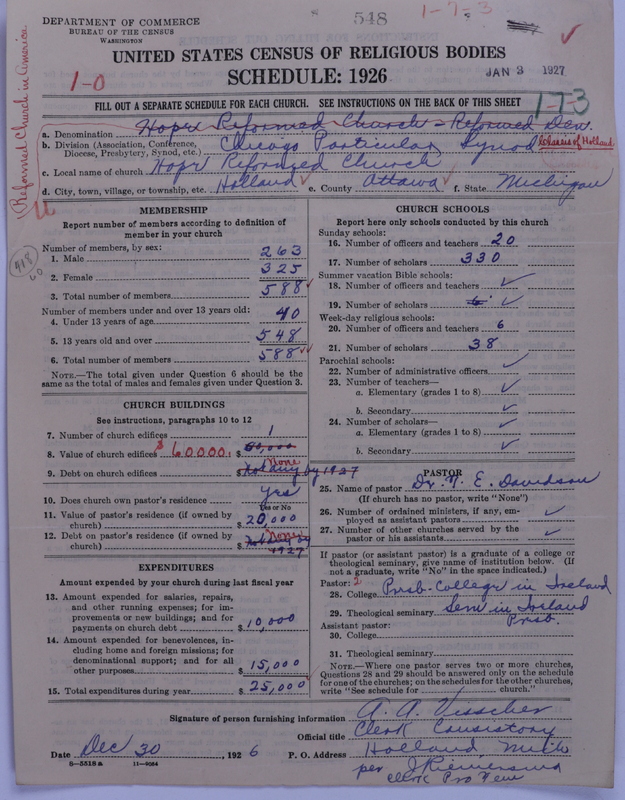 DEPARTMENT OF COMMERCE
BUREAU OF THE CENSUS
WASHINGTON
548
1-7-3
UNITED STATES CENSUS OF RELIGIOUS BODIES
SCHEDULE: 1926
1-0
JAN 3 1927
FILL OUT A SEPARATE SCHEDULE FOR EACH CHURCH. SEE INSTRUCTIONS ON THE BACK OF THIS SHEET
1-7-3
Reformed Church in America
a. Denomination Hope Reformed Church - Reformed Den.
b. Division (Association, Conference, Diocese, Presbytery, Synod, etc.) Chicago Particular Synod Classis of Holland
c. Local name of church Hope Reformed Church
d. City, town, village, or township, etc. Holland e. County Ottawa f. State Michigan
MEMBERSHIP
Report number of members according to definition of member in your church
Number of members, by sex:
1. Male 263
2. Female 325
3. Total number of members 588
Number of members under and over 13 years old:
4. Under 13 years of age 40
5. 13 years old and over 548
6. Total number of members 588
NOTE.—The total given under Question 6 should be the same as the total of males and females given under Question 3.
CHURCH BUILDINGS
See instructions, paragraphs 10 to 12
7. Number of church edifices 1
8. Value of church edifices $60000. $ 60,000
9. Debt on church edifices $ Not any by 1927 None
10. Does church own pastor's residence Yes
Yes or No
11. Value of pastor's residence (if owned by church) $ 20,000
12. Debt on pastor's residence (if owned by church) $ None 1927
EXPENDITURES
Amount expended by your church during last fiscal year
13. Amount expended for salaries, repairs, and other running expenses; for improvements or new buildings; and for payments on church debt $ 10,000
14. Amount expended for benevolences, including home and foreign missions; for denominational support; and for all other purposes $ 15,000
15. Total expenditures during year $ 25,000
CHURCH SCHOOLS
Report here only schools conducted by this church
Sunday schools:
16. Number of officers and teachers 20
17. Number of scholars 330
Summer vacation Bible schools:
18. Number of officers and teachers ✓
19. Number of scholars ✓
Week-day religious schools:
20. Number of officers and teachers 6
21. Number of scholars 38
Parochial schools:
22. Number of administrative officers ✓
23. Number of teachers—
a. Elementary (grades 1 to 8) ✓
b. Secondary ✓
24. Number of scholars—
a. Elementary (grades 1 to 8) ✓
b. Secondary ✓
PASTOR
25. Name of pastor Dr. E. Davidson
(If church has no pastor, write "None")
26. Number of ordained ministers, if any, employed as assistant pastors ✓
27. Number of other churches served by the pastor or his assistants ✓
If pastor (or assistant pastor) is a graduate of a college or theological seminary, give name of institution below. (If not a graduate, write "No" in the space indicated.)
Pastor: 2
28. College Presb. College in Ireland
29. Theological seminary Sem in Ireland Presb.
Assistant pastor:
30. College
31. Theological seminary
NOTE.—Where one pastor serves two or more churches, Questions 28 and 29 should be answered only on the schedule for one of the churches; on the schedules for the other churches, write "See schedule for church."
Signature of person furnishing information A. A. Visscher
Official title Clerk Consistory
Date Dec 30, 1926 P. O. Address Holland Mich
8—5518a 11—9084
per
Clerk Pro Tem